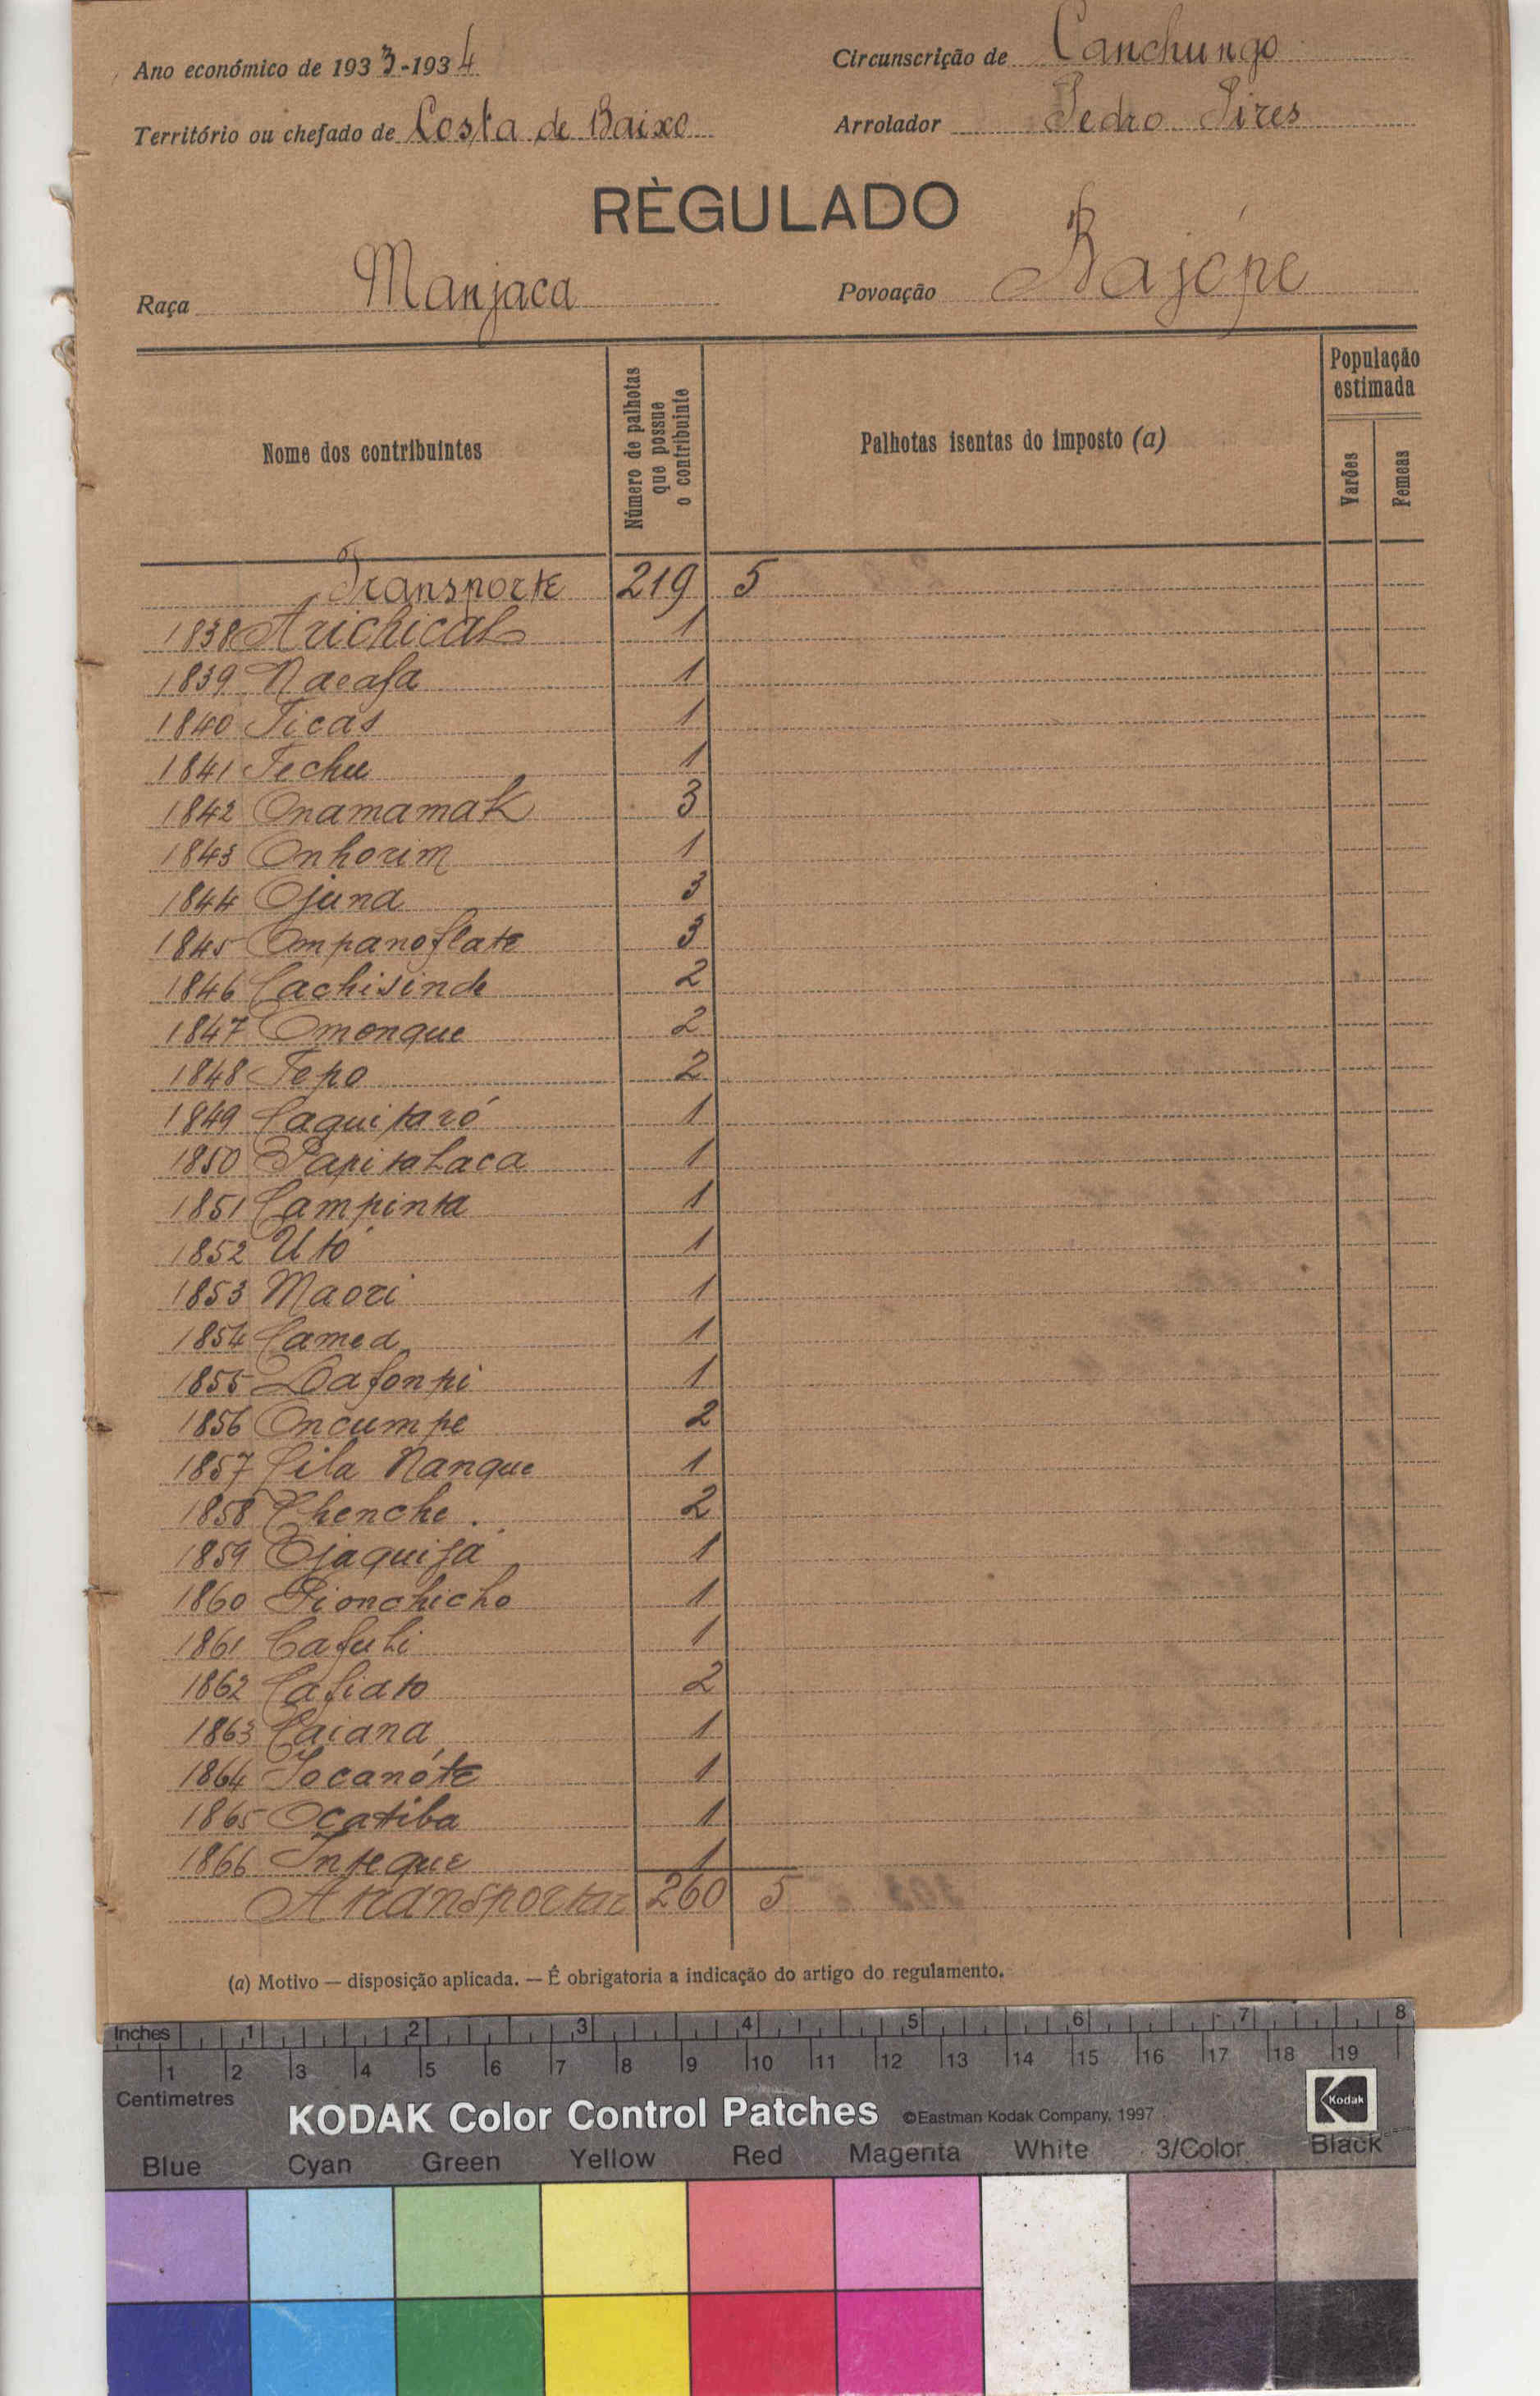 Ano económico de 1933-1934
Circunscrição de Canchungo
Território ou chefado de Costa de Baixo
Arrolador Pedro Pires
RÈGULADO
Raça Manjaca
Povoação Bajópe
Nome dos contribuintes
Número de palhotas que possue o contribuinte
Palhotas isentas do imposto (a)
População estimada
Varões
Femeas
Transporte 219 5
1838 Arichical 1
1839 Nacafa 1
1840 Ticas 1
1841 Techu 1
1842 Onamamak 3
1843 Onhorim 1
1844 Ojuna 3
1845 Ompanoflate 3
1846 Cachisinde 2
1847 Omonque 2
1848 Tepo 2
1849 Caquitaró 1
1850 Papitalaca 1
1851 Campinta 1
1852 Utó 1
1853 Maori 1
1854 Camed 1
1855 Dafonpi 1
1856 Oncumpe 2
1857 Cila Nanque 1
1858 Chenche. 2
1859 Ojaquifá 1
1860 Pionchicho 1
1861 Cafuli 1
1862 Cafiato 2
1863 Caiana 1
1864 Jocanóte 1
1865 Ocatiba 1
1866 Inteque 1
A transportar 260 5
(a) Motivo — disposição aplicada. — É obrigatoria a indicação do artigo do regulamento.
Inches 1 2 3 4 5 6 7 8
1 2 3 4 5 6 7 8 9 10 11 12 13 14 15 16 17 18 19
Centimetres
KODAK Color Control Patches ©Eastman Kodak Company, 1997 Kodak
Blue Cyan Green Yellow Red Magenta White 3/Color Black